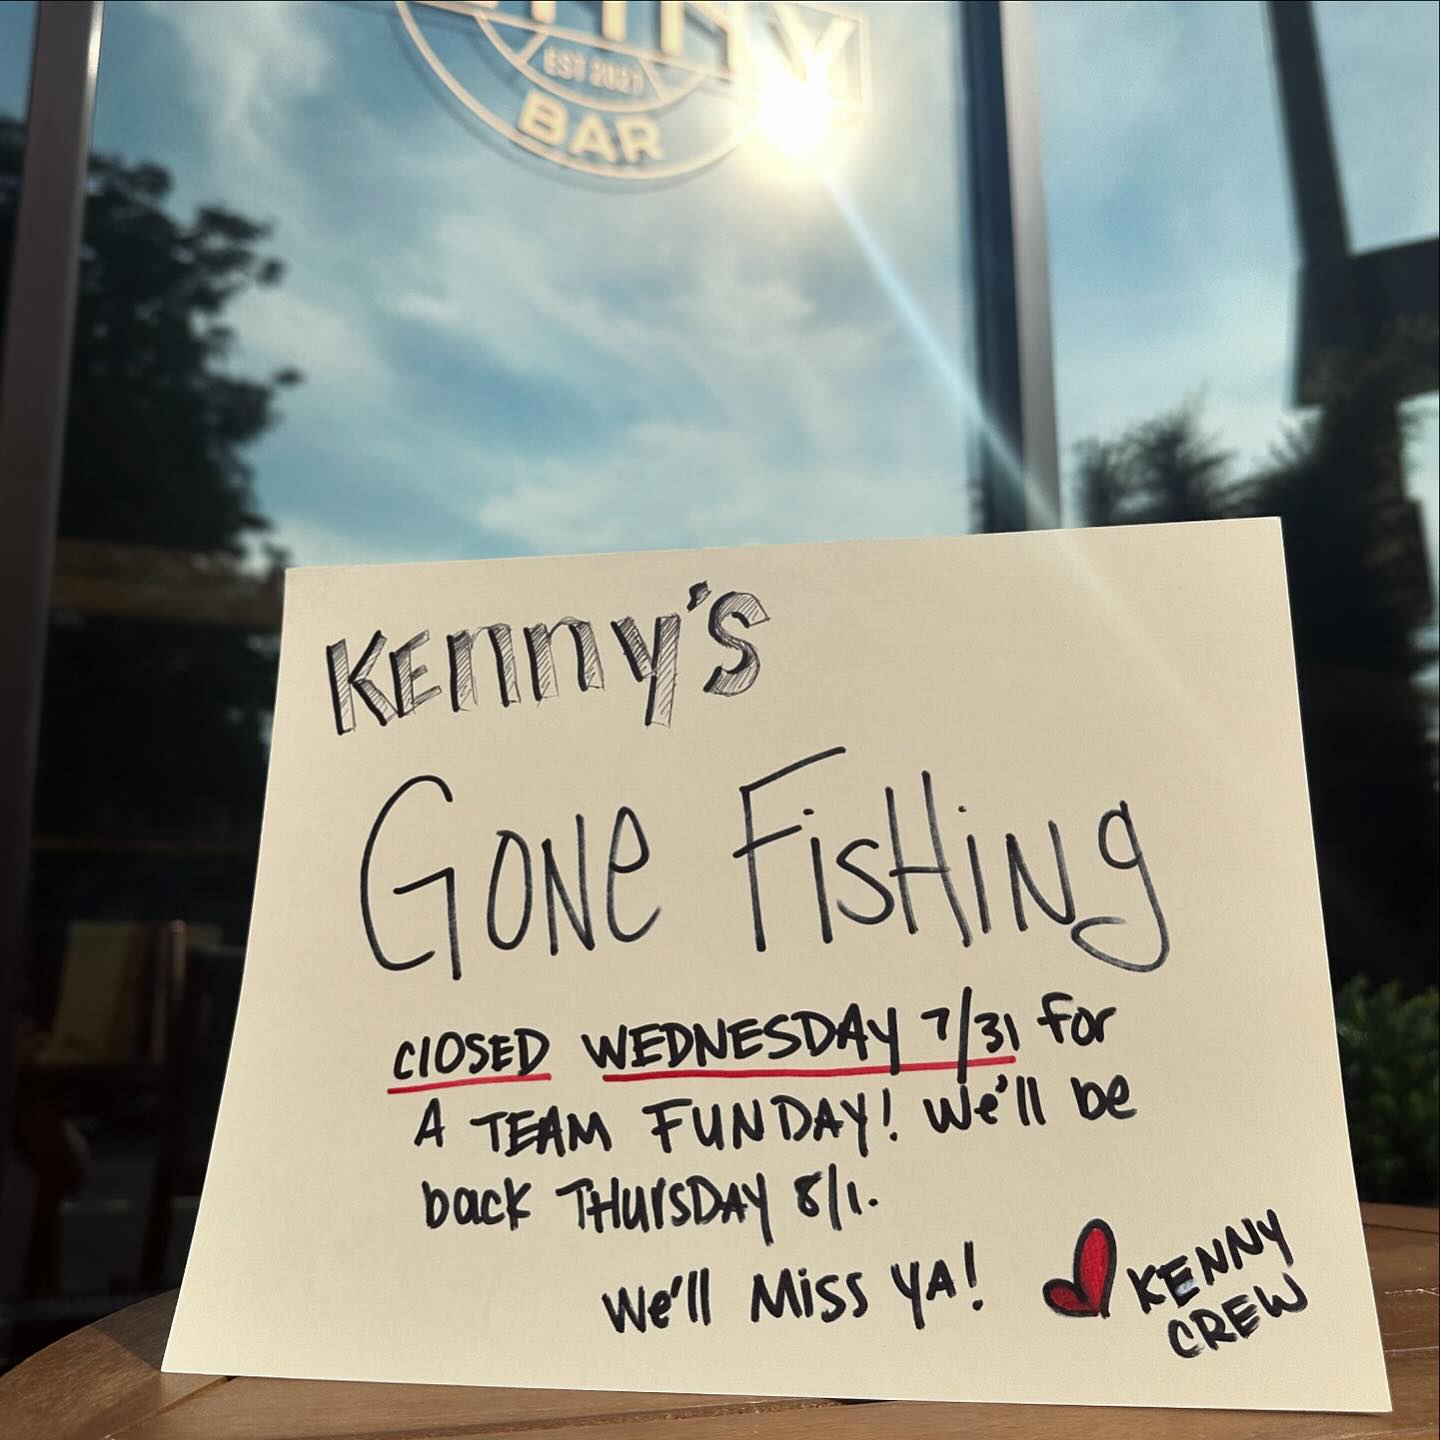 EST 2021
BAR
Kenny's
Gone Fishing
CLOSED WEDNESDAY 7/31 for
A TEAM FUNDAY! We'll be
back THURSDAY 8/1.
We'll Miss YA!
KENNY
CREW